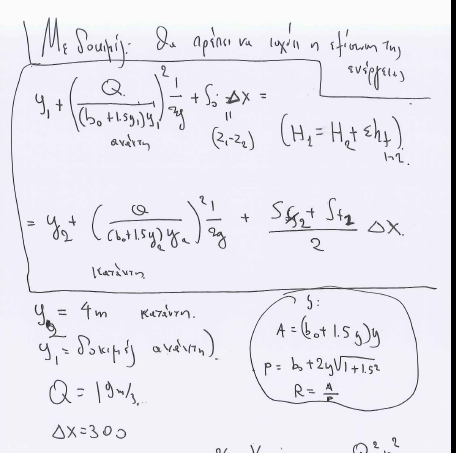 Με δοκιμές: θα πρέπει να ισχύει η εξίσωση της
ενέργειας
y₁ + (Q / (b₀ + 1.5y₁)y₁)² 1/2g + S₀ Δx =
ανάντη
=
(z₁-z₂)
(H₁ = H₂ + Σh_f)
1-2
= y₂ + (Q / (b₀+1.5y₂)y₂)² 1/2g + (S_f2 + S_f2)/2 Δx.
κατάντη
y₂ = 4m κατάντη.
y₁ = δοκιμές ανάντη)
Q = 19 m/3
Δx = 300
y:
A = (b₀ + 1.5y)y
P = b₀ + 2y√(1 + 1.5²)
R = A/P
Q²n²